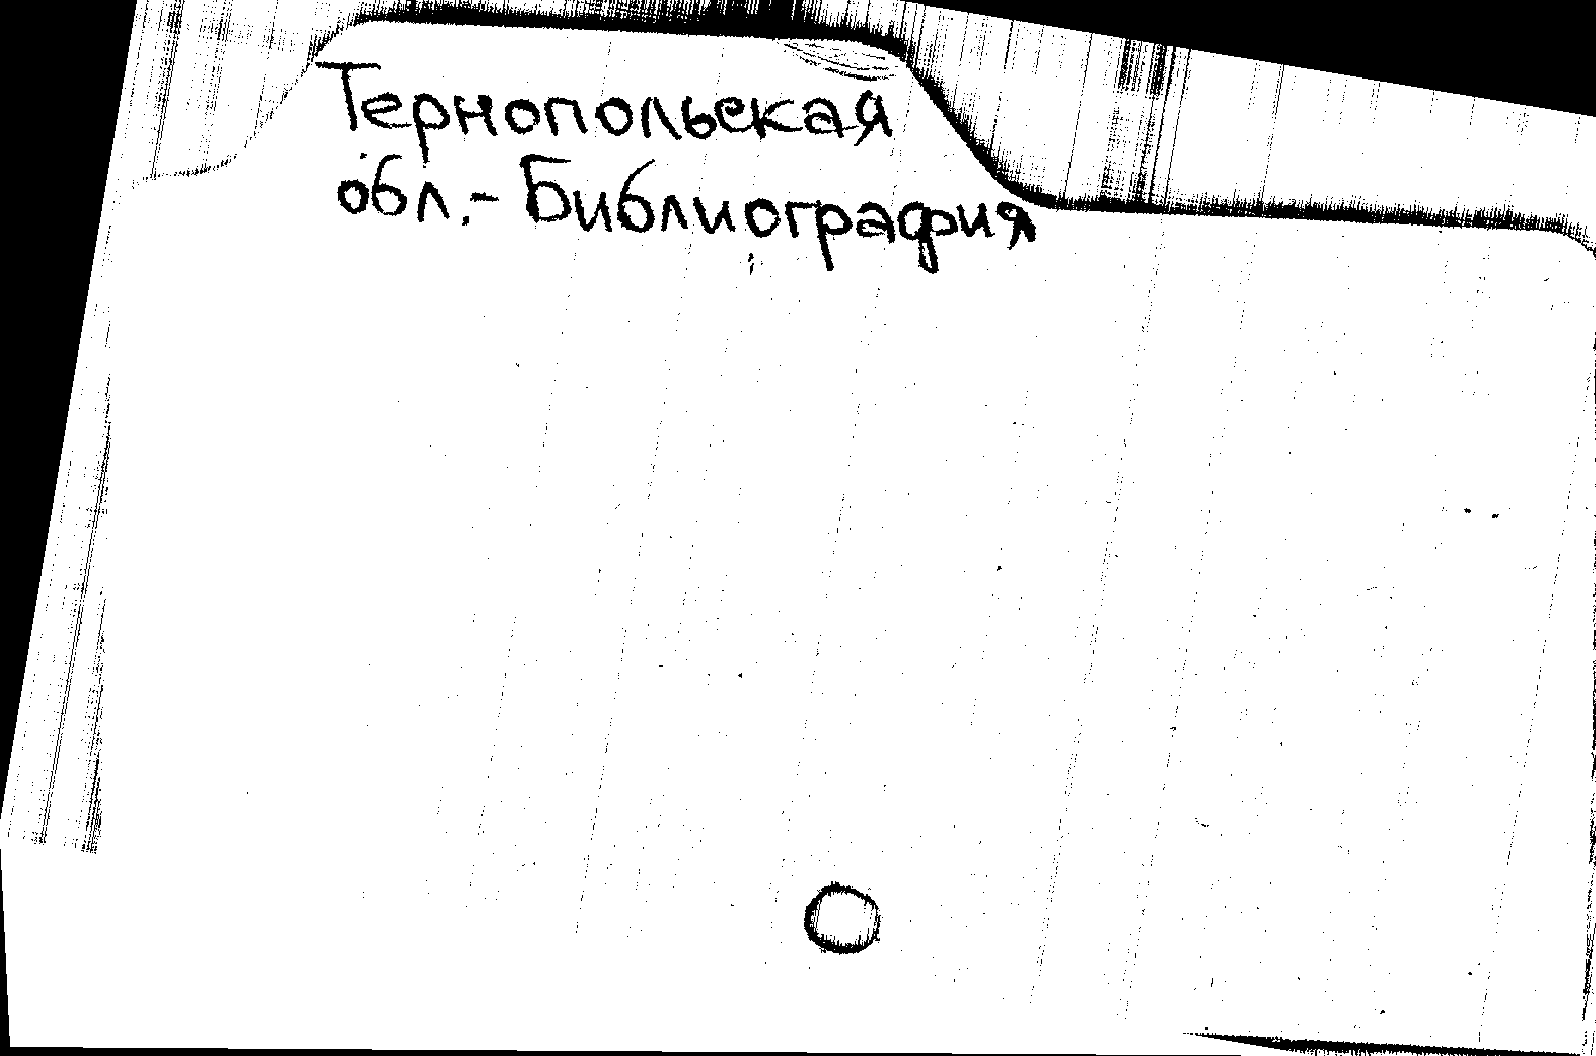 Тернопольская
обл.- Библиография